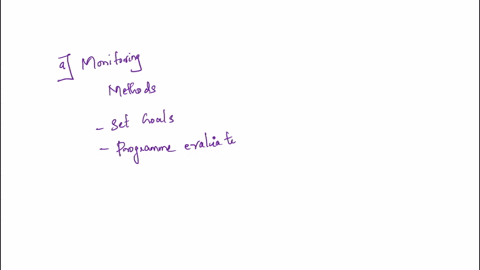 a] Monitoring
Methods
- Set Goals
- Programme evaluate